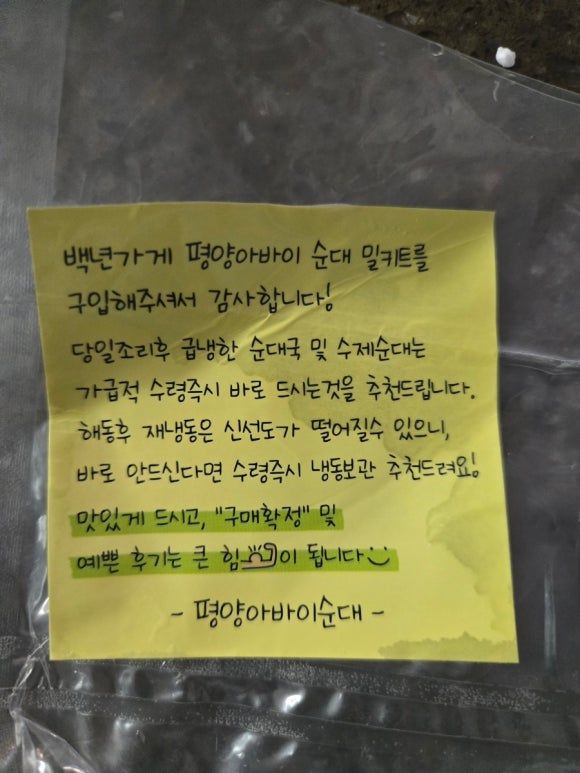 백년가게 평양아바이 순대 밀키트를
구입해주셔서 감사합니다!
당일조리후 급냉한 순대국 및 수제순대는
가급적 수령즉시 바로 드시는것을 추천드립니다.
해동후 재냉동은 신선도가 떨어질수 있으니,
바로 안드신다면 수령즉시 냉동보관 추천드려요!
맛있게 드시고, "구매확정" 및
예쁜 후기는 큰 힘이 됩니다
- 평양아바이순대 -